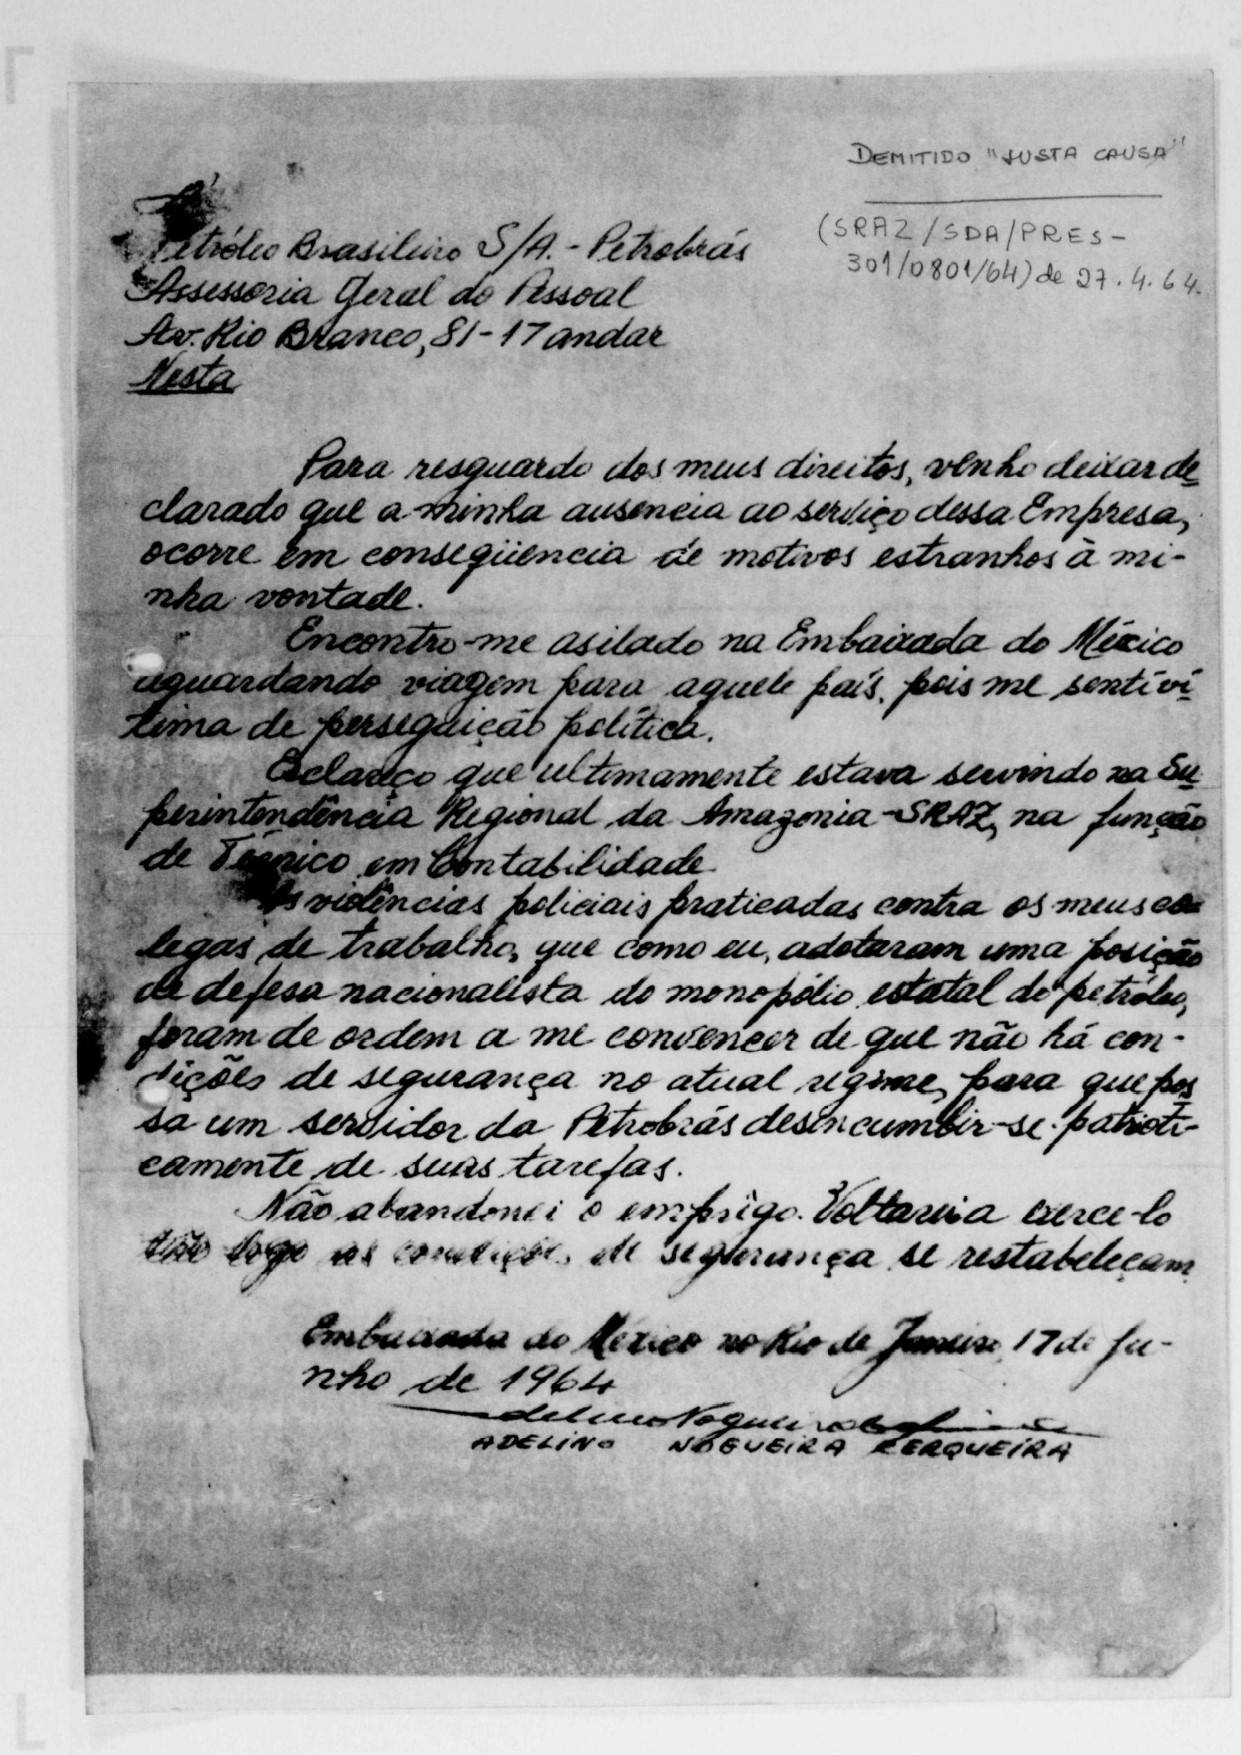 DEMITIDO "JUSTA CAUSA"
(SRAZ/SDA/PRES-
301/0801/64) de 27.4.64.
À
Petróleo Brasileiro S/A. - Petrobrás
Assessoria Geral do Pessoal
Av. Rio Branco, 81-17 andar
Nesta
Para resguardo dos meus direitos, venho deixar de
clarado que a minha ausencia ao serviço dessa Empresa,
ocorre em conseqüencia de motivos estranhos à mi-
nha vontade.
Encontro-me asilado na Embaixada do México
aguardando viagem para aquele país, pois me senti ví
tima de perseguição política.
Esclareço que ultimamente estava servindo na Su
perintendência Regional da Amazonia-SRAZ, na função
de Técnico em Contabilidade.
As violências policiais praticadas contra os meus co
legas de trabalho, que como eu, adotaram uma posição
de defesa nacionalista do monopólio estatal do petróleo,
foram de ordem a me convencer de que não há con-
dições de segurança no atual regime, para que pos
sa um servidor da Petrobrás desincumbir-se patrioti-
camente de suas tarefas.
Não abandonei o emprêgo. Voltarei a exerce-lo
tão logo as condições de segurança se restabeleçam
Embaixada do México no Rio de Janeiro, 17 de ju-
nho de 1964
Adelino Nogueira Cerqueira
ADELINO NOGUEIRA CERQUEIRA